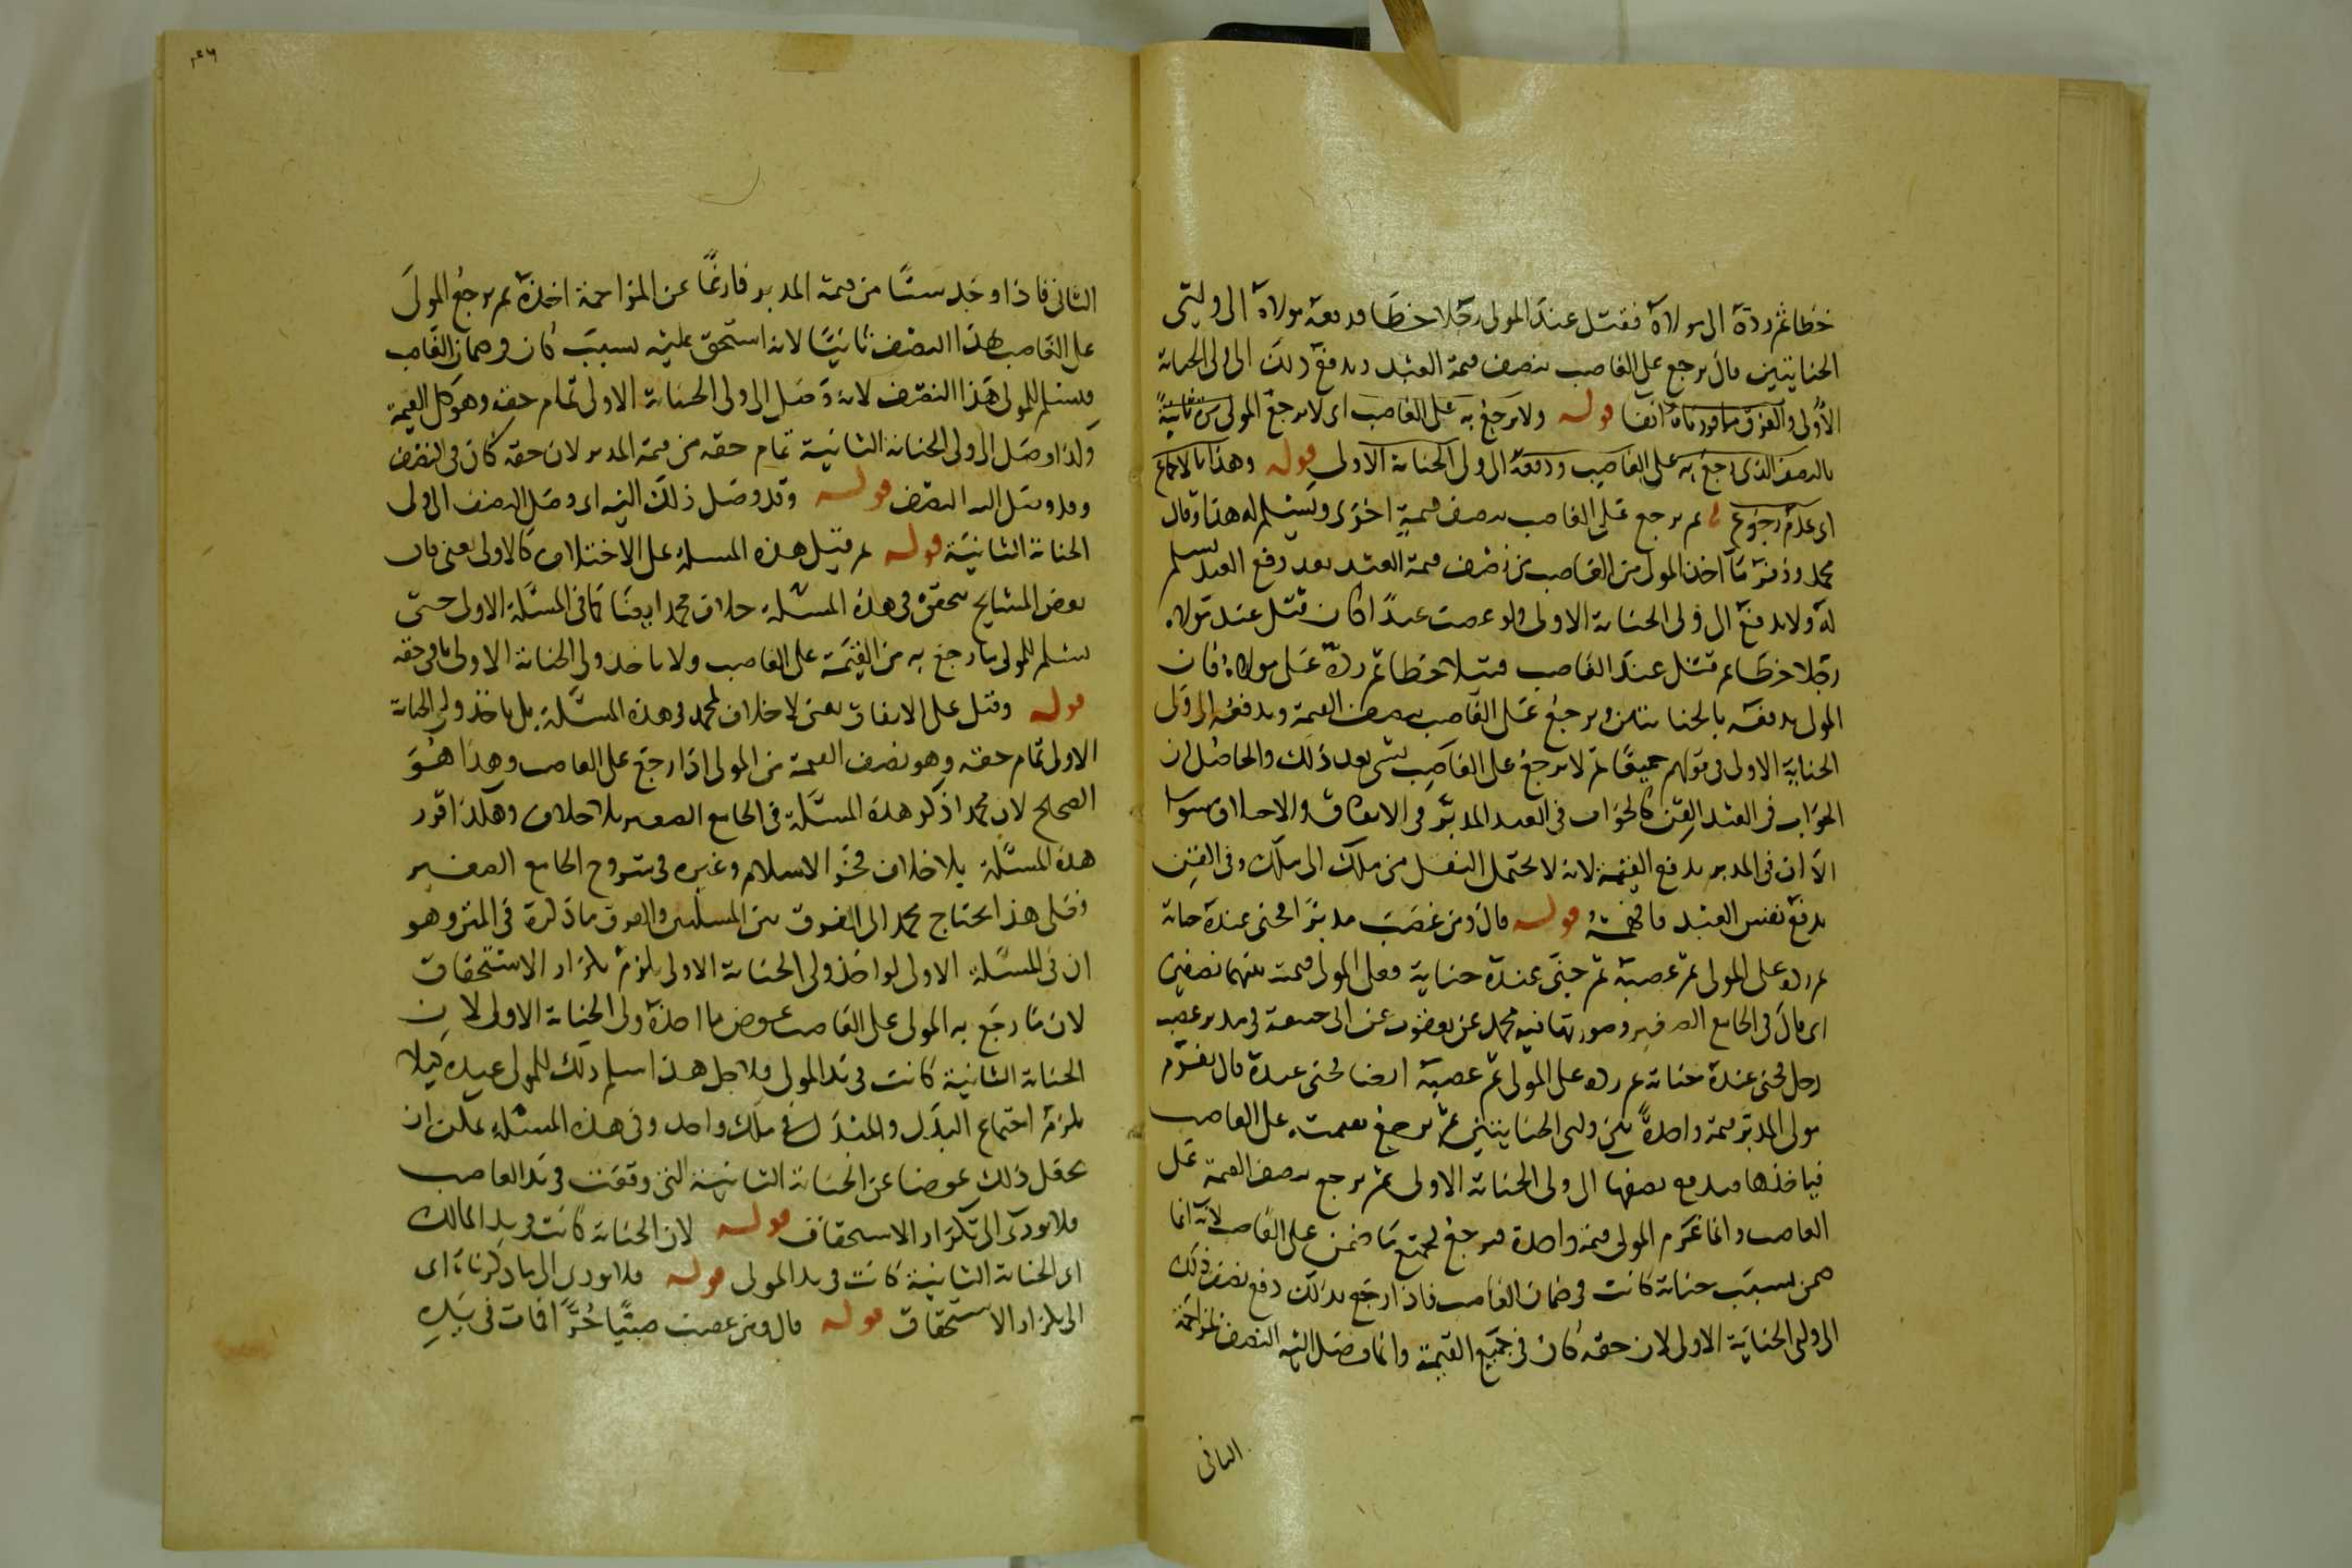 خطا ثم رده الى مولاه فقتل عند المولى رجلا خطا فدفعه مولاه الى وليي
الجنايتين قال يرجع على الغاصب بنصف قيمة العبد ويدفع ذلك الى ولى الجناية
الأولى والفرق ما قررناه انفا قوله ولا يرجع به على الغاصب اى لا يرجع المولى مرة ثانية
بالنصف الذى رجع به على الغاصب ودفعه الى ولى الجناية الاولى قوله وهذا بالاجماع
اى عدم رجوع ثم يرجع على الغاصب بنصف قيمة اخرى ويسلم له هذا وقال
محمد وزفر ما اخذ المولى من الغاصب من نصف قيمة العبد بعد دفع العبد يسلم
له ولا يدفع الى ولى الجناية الاولى ولو غصب عبدا كان قتل عند مولاه
رجلا خطا ثم قتل عند الغاصب قتيلا خطا ثم رده على مولاه فان
المولى يدفعه بالجنايتين ويرجع على الغاصب بنصف القيمة ويدفعه الى ولى
الجناية الاولى فى قولهم جميعا ثم لا يرجع على الغاصب بشى بعد ذلك والحاصل ان
الجواب فى العبد القن كالجواب فى العبد المدبر فى الاتفاق والاختلاف سوا
الا ان فى المدبر يدفع القيمة لانه لا يحتمل النقل من ملك الى ملك وفى القن
يدفع نفس العبد فافهمه قوله قال ومن غصب مدبرا فجنى عنده جناية
ثم رده على المولى ثم غصبه ثم جنى عنده جناية فعلى المولى قيمته بينهما نصفين
اى قال فى الجامع الصغير وصورتها فيه محمد عن يعقوب عن ابى حنيفة فى مدبر غصبه
رجل فجنى عنده جناية ثم رده على المولى ثم غصبه ايضا فجنى عنده قال يغرم
مولى المدبر قيمة واحدة بين وليى الجنايتين ثم يرجع بقيمته على الغاصب
فياخذها فيدفع نصفها الى ولى الجناية الاولى ثم يرجع بنصف القيمة على
الغاصب وانما غرم المولى قيمة واحدة فيرجع بجميع ما ضمن على الغاصب لانه انما
ضمن بسبب جناية كانت فى ضمان الغاصب فاذا رجع بذلك دفع نصف ذلك
الى ولى الجناية الاولى لان حقه كان فى جميع القيمة وانما وصل اليه النصف لمزاحمة
الثانى
١٤٦
الثانى فاذا وجد شيئا من قيمة المدبر فارغا عن المزاحمة اخذه ثم يرجع المولى
على الغاصب بهذا النصف ثانيا لانه استحق عليه بسبب كان فى ضمان الغاصب
فيسلم للمولى هذا النصف لانه وصل الى ولى الجناية الاولى تمام حقه وهو كل القيمة
ولذا وصل الى ولى الجناية الثانية تمام حقه من قيمة المدبر لان حقه كان فى النصف
وقد وصل اليه النصف قوله وقد وصل ذلك اليه اى وصل النصف الى ولى
الجناية الثانية قوله ثم قيل هذه المسلة على الاختلاف كالاولى يعنى قال
بعض المشايخ يتحقق فى هذه المسئلة خلاف محمد ايضا كما فى المسئلة الاولى حتى
يسلم للمولى ما رجع به من القيمة على الغاصب ولا ياخذ ولى الجناية الاولى باقى حقه
قوله وقيل على الاتفاق يعنى لا خلاف لمحمد فى هذه المسئلة بل ياخذ ولى الجناية
الاولى تمام حقه وهو نصف القيمة من المولى اذا رجع على الغاصب وهذا هو
الصحيح لان محمدا ذكر هذه المسئلة فى الجامع الصغير بلا خلاف وهكذا قرر
هذه المسئلة بلا خلاف فخر الاسلام وغيره فى شروح الجامع الصغير
فعلى هذا يحتاج محمد الى الفرق بين المسلتين والفرق ما ذكره فى المتن وهو
ان فى المسئلة الاولى لو اخذ ولى الجناية الاولى يلزم تكرار الاستحقاق
لان ما رجع به المولى على الغاصب عوض ما اخذه ولى الجناية الاولى لان
الجناية الثانية كانت فى يد المولى فلاجل هذا اسلم ذلك للمولى عنده كيلا
يلزم اجتماع البدل والمبدل فى ملك واحد وفى هذه المسئلة يمكن ان
يجعل ذلك عوضا عن الجناية الثانية التى وقعت فى يد الغاصب
فلا يودى الى تكرار الاستحقاق قوله لان الجناية كانت فى يد المالك
اى الجناية الثانية كانت فى يد المولى قوله فلا يودى الى ما ذكرناه اى
الى تكرار الاستحقاق قوله قال ومن غصب صبيا حرا فمات فى يده